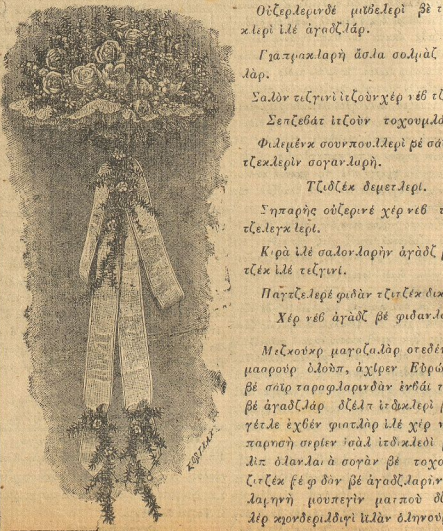 Οὐζερλερινδὲ μιϐβελερὶ βὲ τ
κλερὶ ἰλὲ ἀγαδζλάρ.
Γιαπρακλαρὴ ἄσλα σολμὰζ
λάρ.
Σαλὸν τεζγινὶ ἰτζοὺν χὲρ νὲβ τζ
Σεπζεβὰτ ἰτζοὺν τοχουμλα
Φιλεμὲνκ σουνπουλλερὶ βὲ σά
τζεκλερὶν σογανλαρή.
Τζιδζὲκ δεμετλερί.
Σηπαρὴς οὐζερινὲ χὲρ νὲβ τ
τζελεγκλερί.
Κ ρὰ ἰλὲ σαλονλαρὴν ἀγὰδζ β
τζὲκ ἰλὲ τεζγινί.
Παγτζελερὲ φιδὰν τζιτζὲκ δικ
Χὲρ νὲβ ἀγὰδζ βὲ φιδανλα
Μεζκοὺρ μαγαζαλὰρ ὀτεδὲν
μααροὺφ ὀλοὺπ, ἀχίρεν Εὐρώ
βὲ σαῒρ ταραφλαρινδὰν ἐνβάϊ τ
βὲ ἀγαδζλὰρ δζὲλπ ἰτδικλερὶ
γέτλε ἐχβὲν φιατλὰρ ἰλὲ χὲρ ν
παρησὴ σερίεν ἰσὰλ ἰτδικλεδὶ
λὶπ ὀλανλαρὰ σογὰν βὲ τοχο
ζιτζὲκ βὲ φιδὰν βὲ ἀγαδζλαρὴν
λαμηνὴ μουπεγὶν ματποὺ δ
λὲρ κιονδεριλδιγὶ ἰλὰν ὀληνου